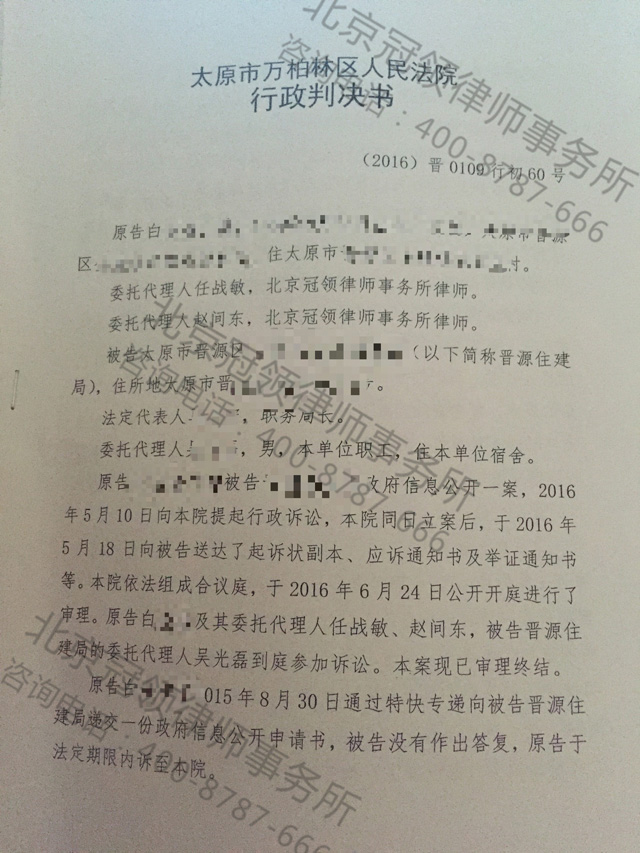 太原市万柏林区人民法院
行政判决书
（2016）晋 0109 行初 60 号
原告白
原市晋源
区 住太原市 村。
委托代理人任战敏，北京冠领律师事务所律师。
委托代理人赵间东，北京冠领律师事务所律师。
被告太原市晋源区 （以下简称晋源住建
局），住所地太原市晋 。
法定代表人 ，职务局长。
委托代理人吴 ，男，本单位职工，住本单位宿舍。
原告 被告 政府信息公开一案，2016
年 5 月 10 日向本院提起行政诉讼，本院同日立案后，于 2016 年
5 月 18 日向被告送达了起诉状副本、应诉通知书及举证通知书
等。本院依法组成合议庭，于 2016 年 6 月 24 日公开开庭进行了
审理。原告白 及其委托代理人任战敏、赵间东，被告晋源住
建局的委托代理人吴光磊到庭参加诉讼。本案现已审理终结。
原告白 015 年 8 月 30 日通过特快专递向被告晋源住
建局递交一份政府信息公开申请书，被告没有作出答复，原告于
法定期限内诉至本院。
北京冠领律师事务所
咨询电话：400-8787-666
北京冠领律师事务所
咨询电话：400-8787-666
北京冠领律师事务所
咨询电话：400-8787-666